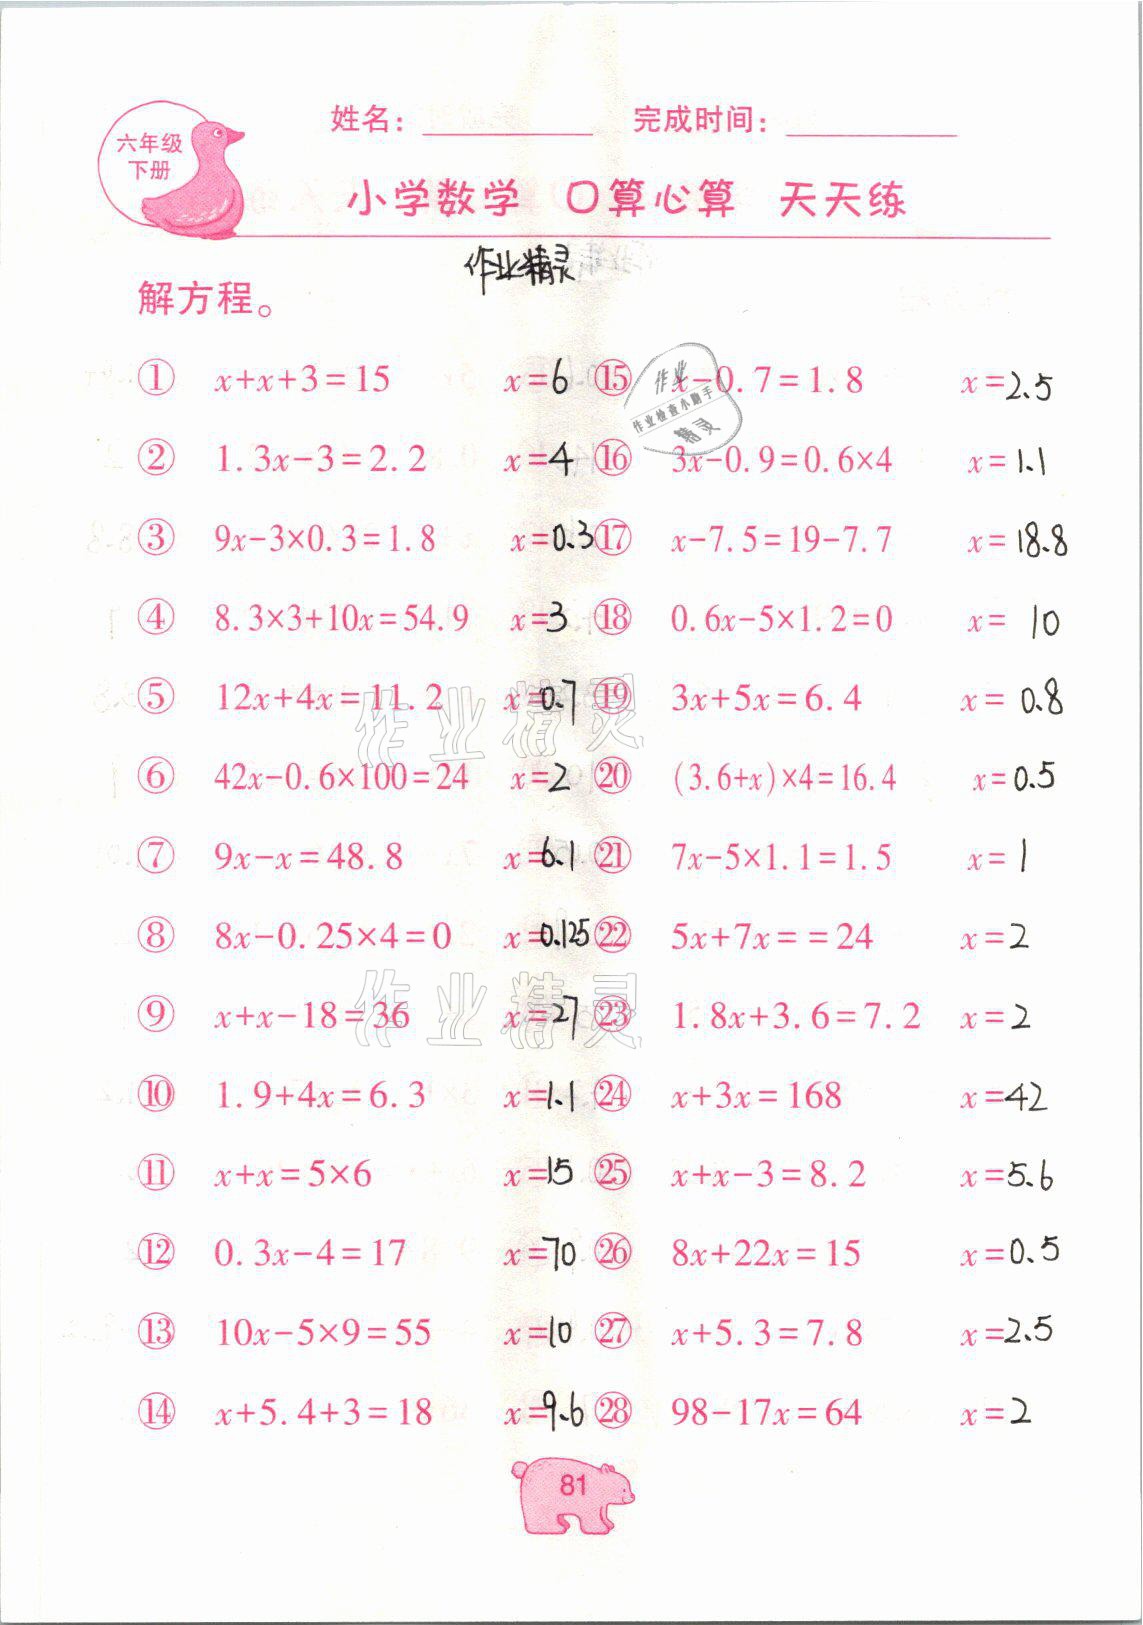 姓名： 完成时间：
六年级
下册
小学数学 口算心算 天天练
作业精灵
解方程。
① x+x+3=15 x=6 ⑮ x-0.7=1.8 x=2.5
② 1.3x-3=2.2 x=4 ⑯ 3x-0.9=0.6×4 x=1.1
③ 9x-3×0.3=1.8 x=0.3 ⑰ x-7.5=19-7.7 x=18.8
④ 8.3×3+10x=54.9 x=3 ⑱ 0.6x-5×1.2=0 x=10
⑤ 12x+4x=11.2 x=0.7 ⑲ 3x+5x=6.4 x=0.8
⑥ 42x-0.6×100=24 x=2 ⑳ (3.6+x)×4=16.4 x=0.5
⑦ 9x-x=48.8 x=6.1 ㉑ 7x-5×1.1=1.5 x=1
⑧ 8x-0.25×4=0 x=0.125 ㉒ 5x+7x==24 x=2
⑨ x+x-18=36 x=27 ㉓ 1.8x+3.6=7.2 x=2
⑩ 1.9+4x=6.3 x=1.1 ㉔ x+3x=168 x=42
⑪ x+x=5×6 x=15 ㉕ x+x-3=8.2 x=5.6
⑫ 0.3x-4=17 x=70 ㉖ 8x+22x=15 x=0.5
⑬ 10x-5×9=55 x=10 ㉗ x+5.3=7.8 x=2.5
⑭ x+5.4+3=18 x=9.6 ㉘ 98-17x=64 x=2
作业
作业检查小助手
精灵
作业精灵
作业精灵
81